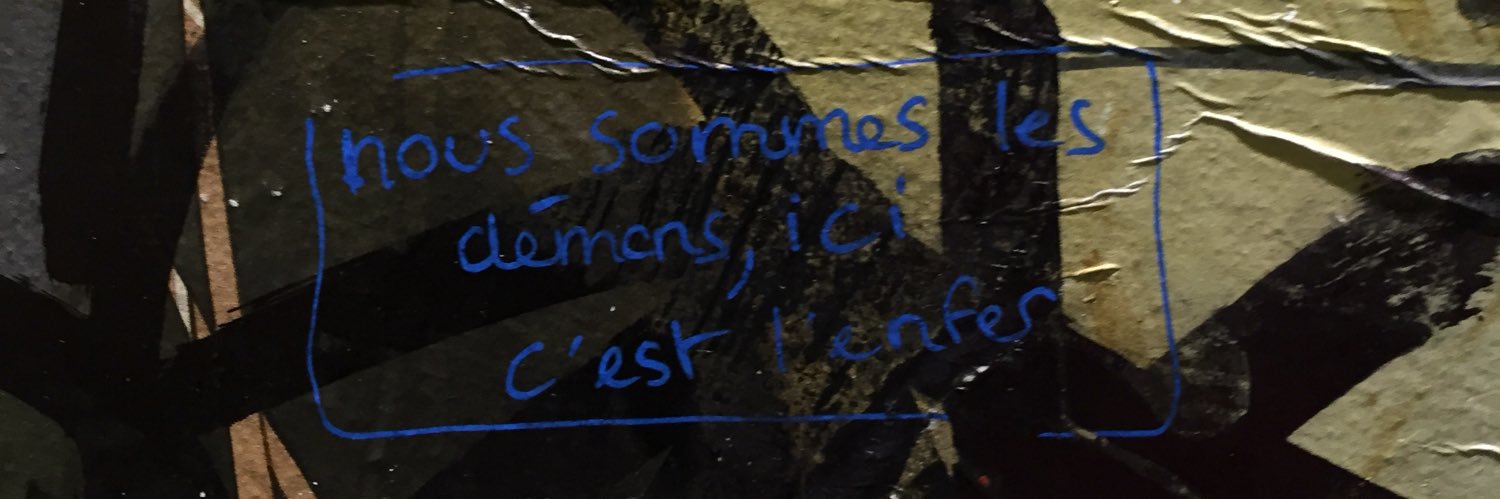 nous sommes les
démons, ici
c'est l'enfer